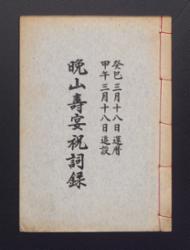 癸巳三月十八日還曆
甲午三月十八日追設
晩山壽宴祝詞録